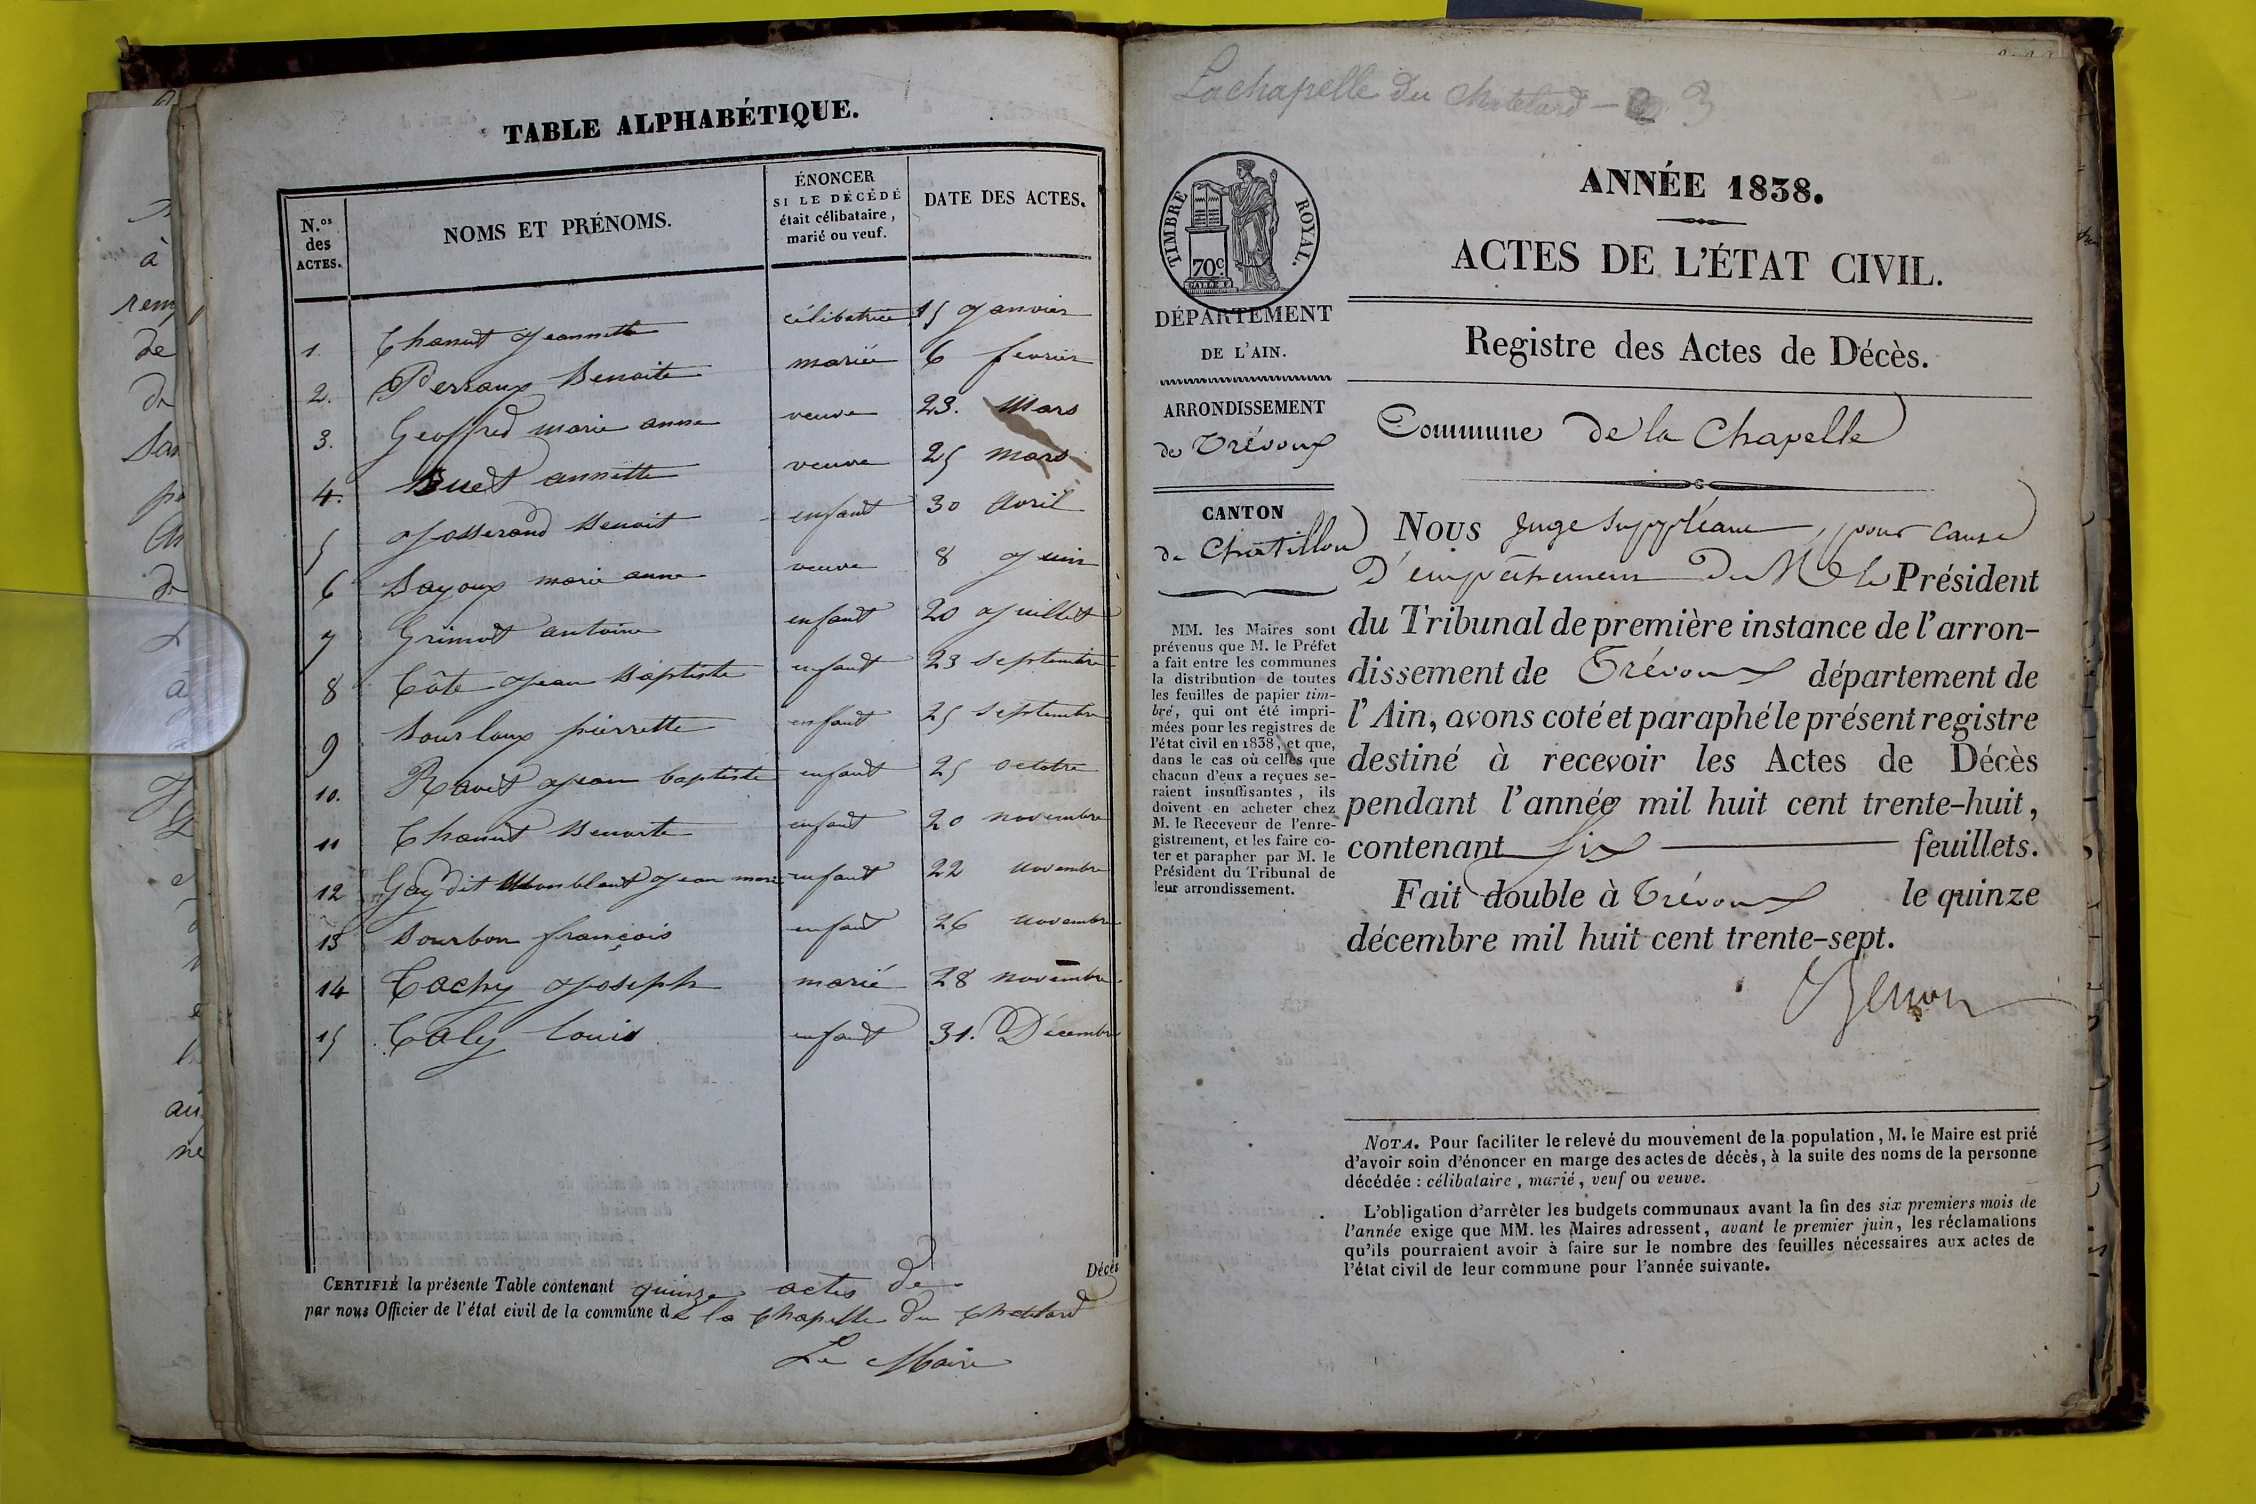 TABLE ALPHABÉTIQUE.
N.os des ACTES. NOMS ET PRÉNOMS. ÉNONCER SI LE DÉCÉDÉ était célibataire, marié ou veuf. DATE DES ACTES.
1. Chanut Jeannette célibatrice 15 Janvier
2. Perraux Benoite mariée 6 fevrier
3. Geoffred marie anne veuve 23. Mars
4. Buet annette veuve 25 Mars
5 Josserand Benoit enfant 30 Avril
6 Bayoux marie anne veuve 8 Juin
7 Grimot antoine enfant 20 Juillet
8 Côte Jean Baptiste enfant 23 septembre
9 Bourloux pierrette enfant 25 septembre
10. Ravet Jean baptiste enfant 25 octobre
11 Chanut Benoite enfant 20 novembre
12 Gay dit Monblant Jean marie enfant 22 novembre
13 Bourbon françois enfant 26 novembre
14 Cachy Joseph marié 28 novembre
15 Caly Louis enfant 31. Décembre
CERTIFIÉ la présente Table contenant quinze actes de Décès
par nous Officier de l'état civil de la commune de la Chapelle du Chatelard
Le Maire
Lachapelle du Chatelard - 3
TIMBRE ROYAL.
70c
ANNÉE 1838.
ACTES DE L'ÉTAT CIVIL.
Registre des Actes de Décès.
Commune de la Chapelle
DÉPARTEMENT
DE L'AIN.
ARRONDISSEMENT
de Trévoux
CANTON
de Châtillon
MM. les Maires sont
prévenus que M. le Préfet
a fait entre les communes
la distribution de toutes
les feuilles de papier tim-
bré, qui ont été impri-
mées pour les registres de
l'état civil en 1838, et que,
dans le cas où celles que
chacun d'eux a reçues se-
raient insuffisantes, ils
doivent en acheter chez
M. le Receveur de l'enre-
gistrement, et les faire co-
ter et parapher par M. le
Président du Tribunal de
leur arrondissement.
Nous Juge Suppléant, pour cause
D'empêchement De M. le Président
du Tribunal de première instance de l'arron-
dissement de Trévoux département de
l'Ain, avons coté et paraphé le présent registre
destiné à recevoir les Actes de Décès
pendant l'année mil huit cent trente-huit,
contenant six feuillets.
Fait double à Trévoux le quinze
décembre mil huit cent trente-sept.
NOTA. Pour faciliter le relevé du mouvement de la population, M. le Maire est prié
d'avoir soin d'énoncer en marge des actes de décès, à la suite des noms de la personne
décédée : célibataire, marié, veuf ou veuve.
L'obligation d'arrêter les budgets communaux avant la fin des six premiers mois de
l'année exige que MM. les Maires adressent, avant le premier juin, les réclamations
qu'ils pourraient avoir à faire sur le nombre des feuilles nécessaires aux actes de
l'état civil de leur commune pour l'année suivante.